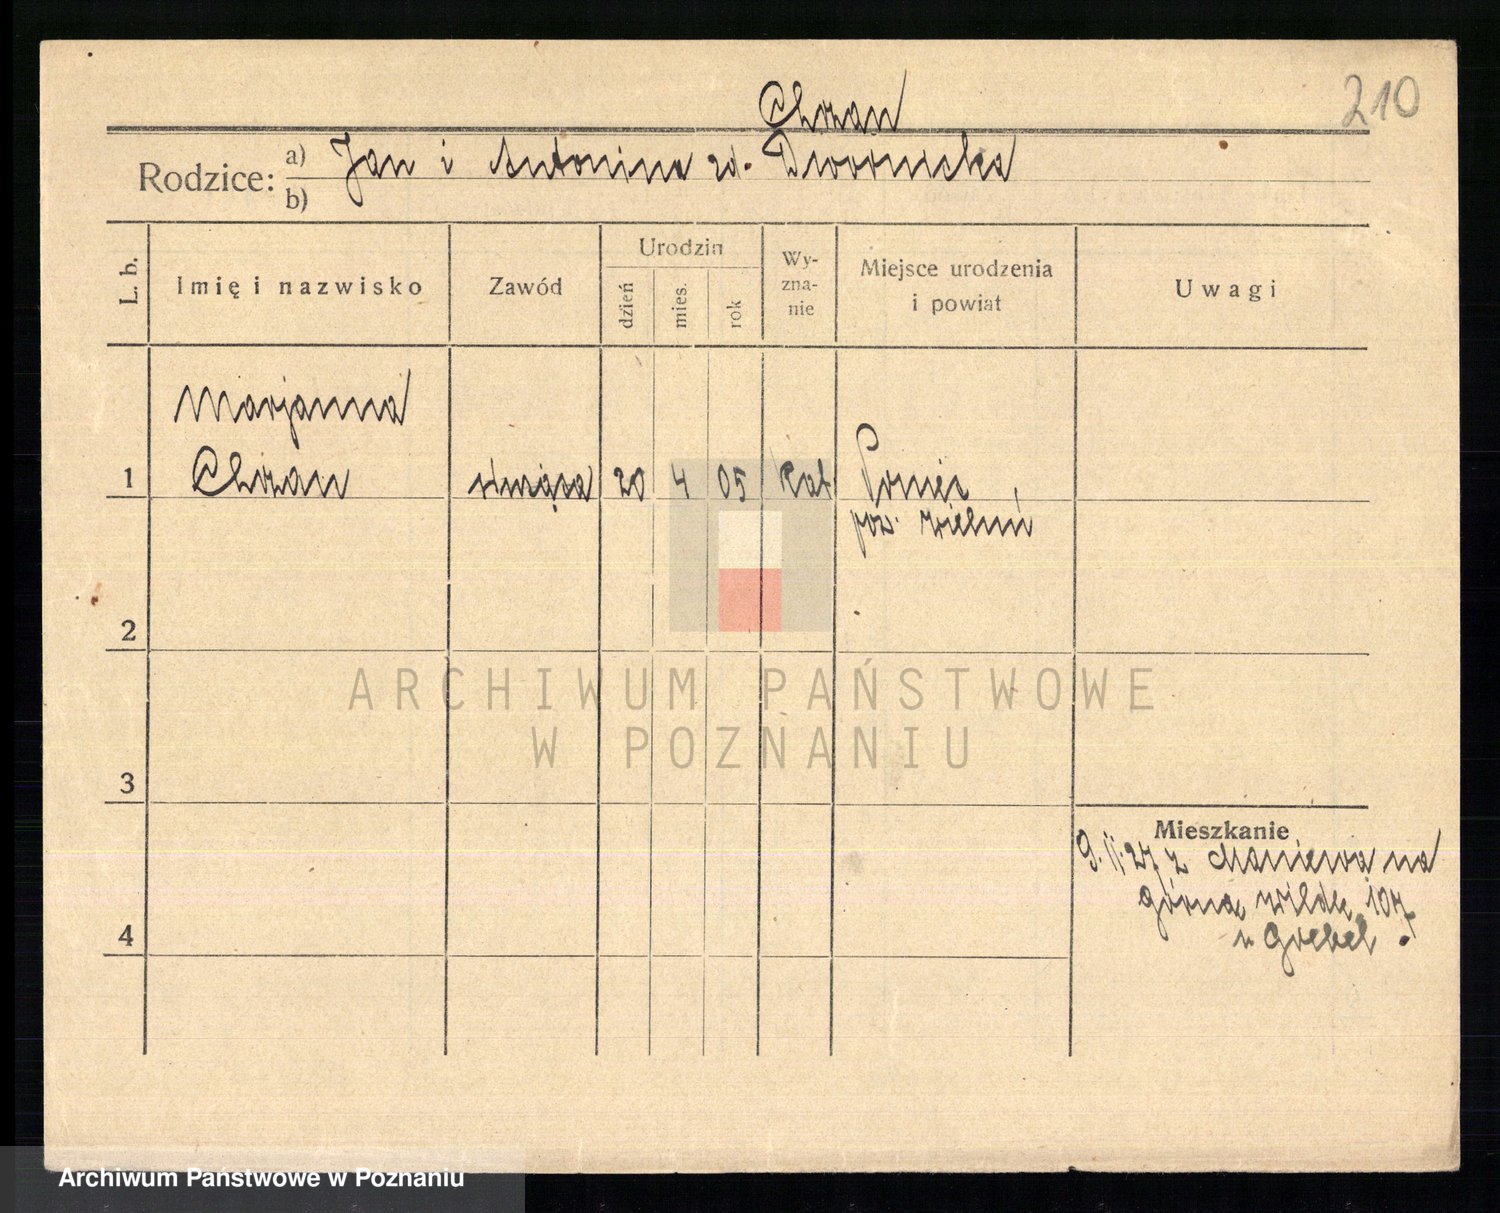 210
Chrzan
Rodzice: a) Jan i Antonina zd. Dwornicka
b)
L. b.
Imię i nazwisko
Zawód
Urodzin
dzień
mies.
rok
Wy-
zna-
nie
Miejsce urodzenia
i powiat
Uwagi
Marjanna
1 Chrzan służąca 20 4 05 Kat
pow. Wieluń
2
3
4
Mieszkanie
9. II. 27 z Maniewa na
Górna Wilda 107
u Goebel.
ARCHIWUM PAŃSTWOWE
W POZNANIU
Archiwum Państwowe w Poznaniu